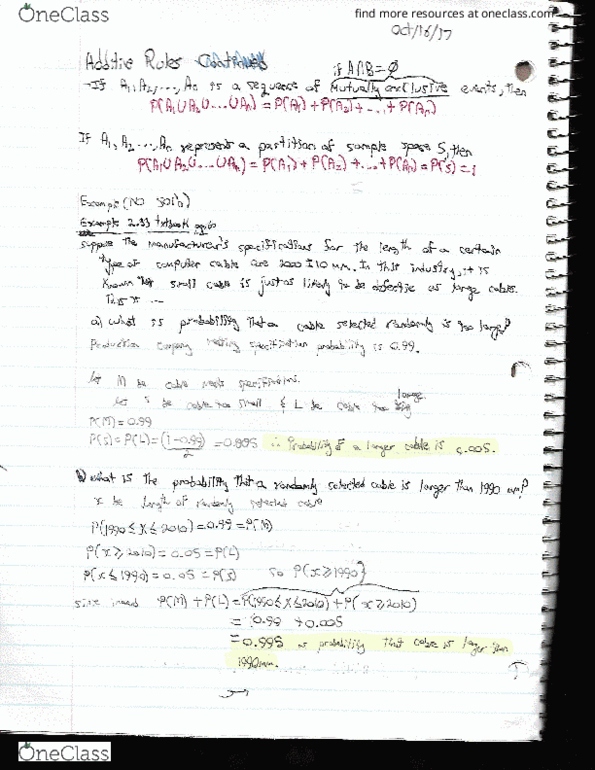 OneClass
find more resources at oneclass.com
Oct/16/17
Additive Rules Continued if A∩B=∅
If A1,A2,...,An is a sequence of Mutually exclusive events, then
P(A1∪A2∪...∪An) = P(A1)+P(A2)+...+P(An)
If A1, A2,...,An represents a partition of sample space S, then
P(A1∪A2∪...∪An) = P(A1)+P(A2)+...+P(An)=P(S)=1
Example (NO
Example 2.33 textbook
suppose The manufacturer's specifications for the length of a certain
type of computer cable are 2000±10 mm. In this industry, it is
Known that small cable is just as likely to be defective as large cables.
That is ...
a) what is probability that a cable selected randomly is too large?
Production company meeting specification probability is 0.99.
let M be cable meets specifications.
let s be cable too small & L be cable too large
P(M)=0.99
P(s)=P(L)=(1-0.99)/2 =0.005 ∴ Probability of a larger cable is 0.005.
b) what is the probability that a randomly selected cable is larger than 1990 mm?
x be length of randomly selected cable
P(1990≤X≤2010)=0.99=P(M)
P(x≥2010)=0.05=P(L)
P(x≤1990)=0.05=P(s) so P(x≥1990)
P(M)+P(L)=P(1990≤X≤2010)+P(x≥2010)
= 0.99 +0.005
=0.995 is probability that cable is larger than
1990mm.
OneClass